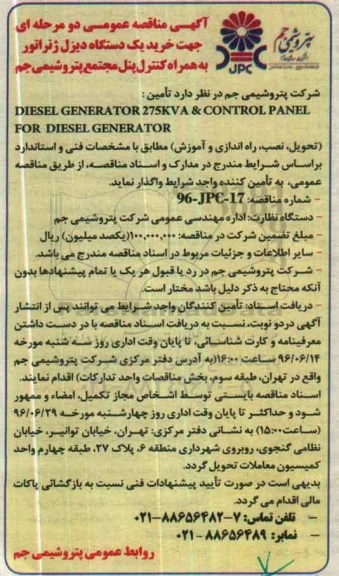 آگهی مناقصه عمومی دو مرحله ای
جهت خرید یک دستگاه دیزل ژنراتور
به همراه کنترل پنل مجتمع پتروشیمی جم
پتروشیمی جم
JPC
شرکت پتروشیمی جم در نظر دارد تأمین :
DIESEL GENERATOR 275KVA & CONTROL PANEL
FOR DIESEL GENERATOR
(تحویل، نصب، راه اندازی و آموزش) مطابق با مشخصات فنی و استاندارد
براساس شرایط مندرج در مدارک و اسناد مناقصه، از طریق مناقصه
عمومی، به تأمین کننده واجد شرایط واگذار نماید.
- شماره مناقصه: 96-JPC-17
- دستگاه نظارت: اداره مهندسی عمومی شرکت پتروشیمی جم
- مبلغ تضمین شرکت در مناقصه: ۱۰۰,۰۰۰,۰۰۰ (یکصد میلیون) ریال
- سایر اطلاعات و جزئیات مربوط در اسناد مناقصه مندرج می باشد.
- شرکت پتروشیمی جم در رد یا قبول هر یک یا تمام پیشنهادها بدون
آنکه محتاج به ذکر دلیل باشد مختار است.
- دریافت اسناد: تأمین کنندگان واجد شرایط می توانند پس از انتشار
آگهی در دو نوبت، نسبت به دریافت اسناد مناقصه با در دست داشتن
معرفینامه و کارت شناسائی، تا پایان وقت اداری روز سه شنبه مورخه
۹۶/۰۶/۱۴ ساعت ۱۶:۰۰ (به آدرس دفتر مرکزی شرکت پتروشیمی جم
واقع در تهران، طبقه سوم، بخش مناقصات واحد تدارکات) اقدام نمایند.
اسناد مناقصه بایستی توسط اشخاص مجاز تکمیل، امضاء و ممهور
شود و حداکثر تا پایان وقت اداری روز چهارشنبه مورخه ۹۶/۰۶/۲۹
(ساعت ۱۵:۰۰) به نشانی دفتر مرکزی: تهران، خیابان توانیر، خیابان
نظامی گنجوی، روبروی شهرداری منطقه ۶، پلاک ۲۷، طبقه چهارم واحد
کمیسیون معاملات تحویل گردد.
بدیهی است در صورت تأیید پیشنهادات فنی نسبت به بازگشائی پاکات
مالی اقدام می گردد.
- تلفن تماس: ۷-۸۸۶۵۶۴۸۲-۰۲۱
- نمابر: ۸۸۶۵۶۴۸۹-۰۲۱
روابط عمومی پتروشیمی جم